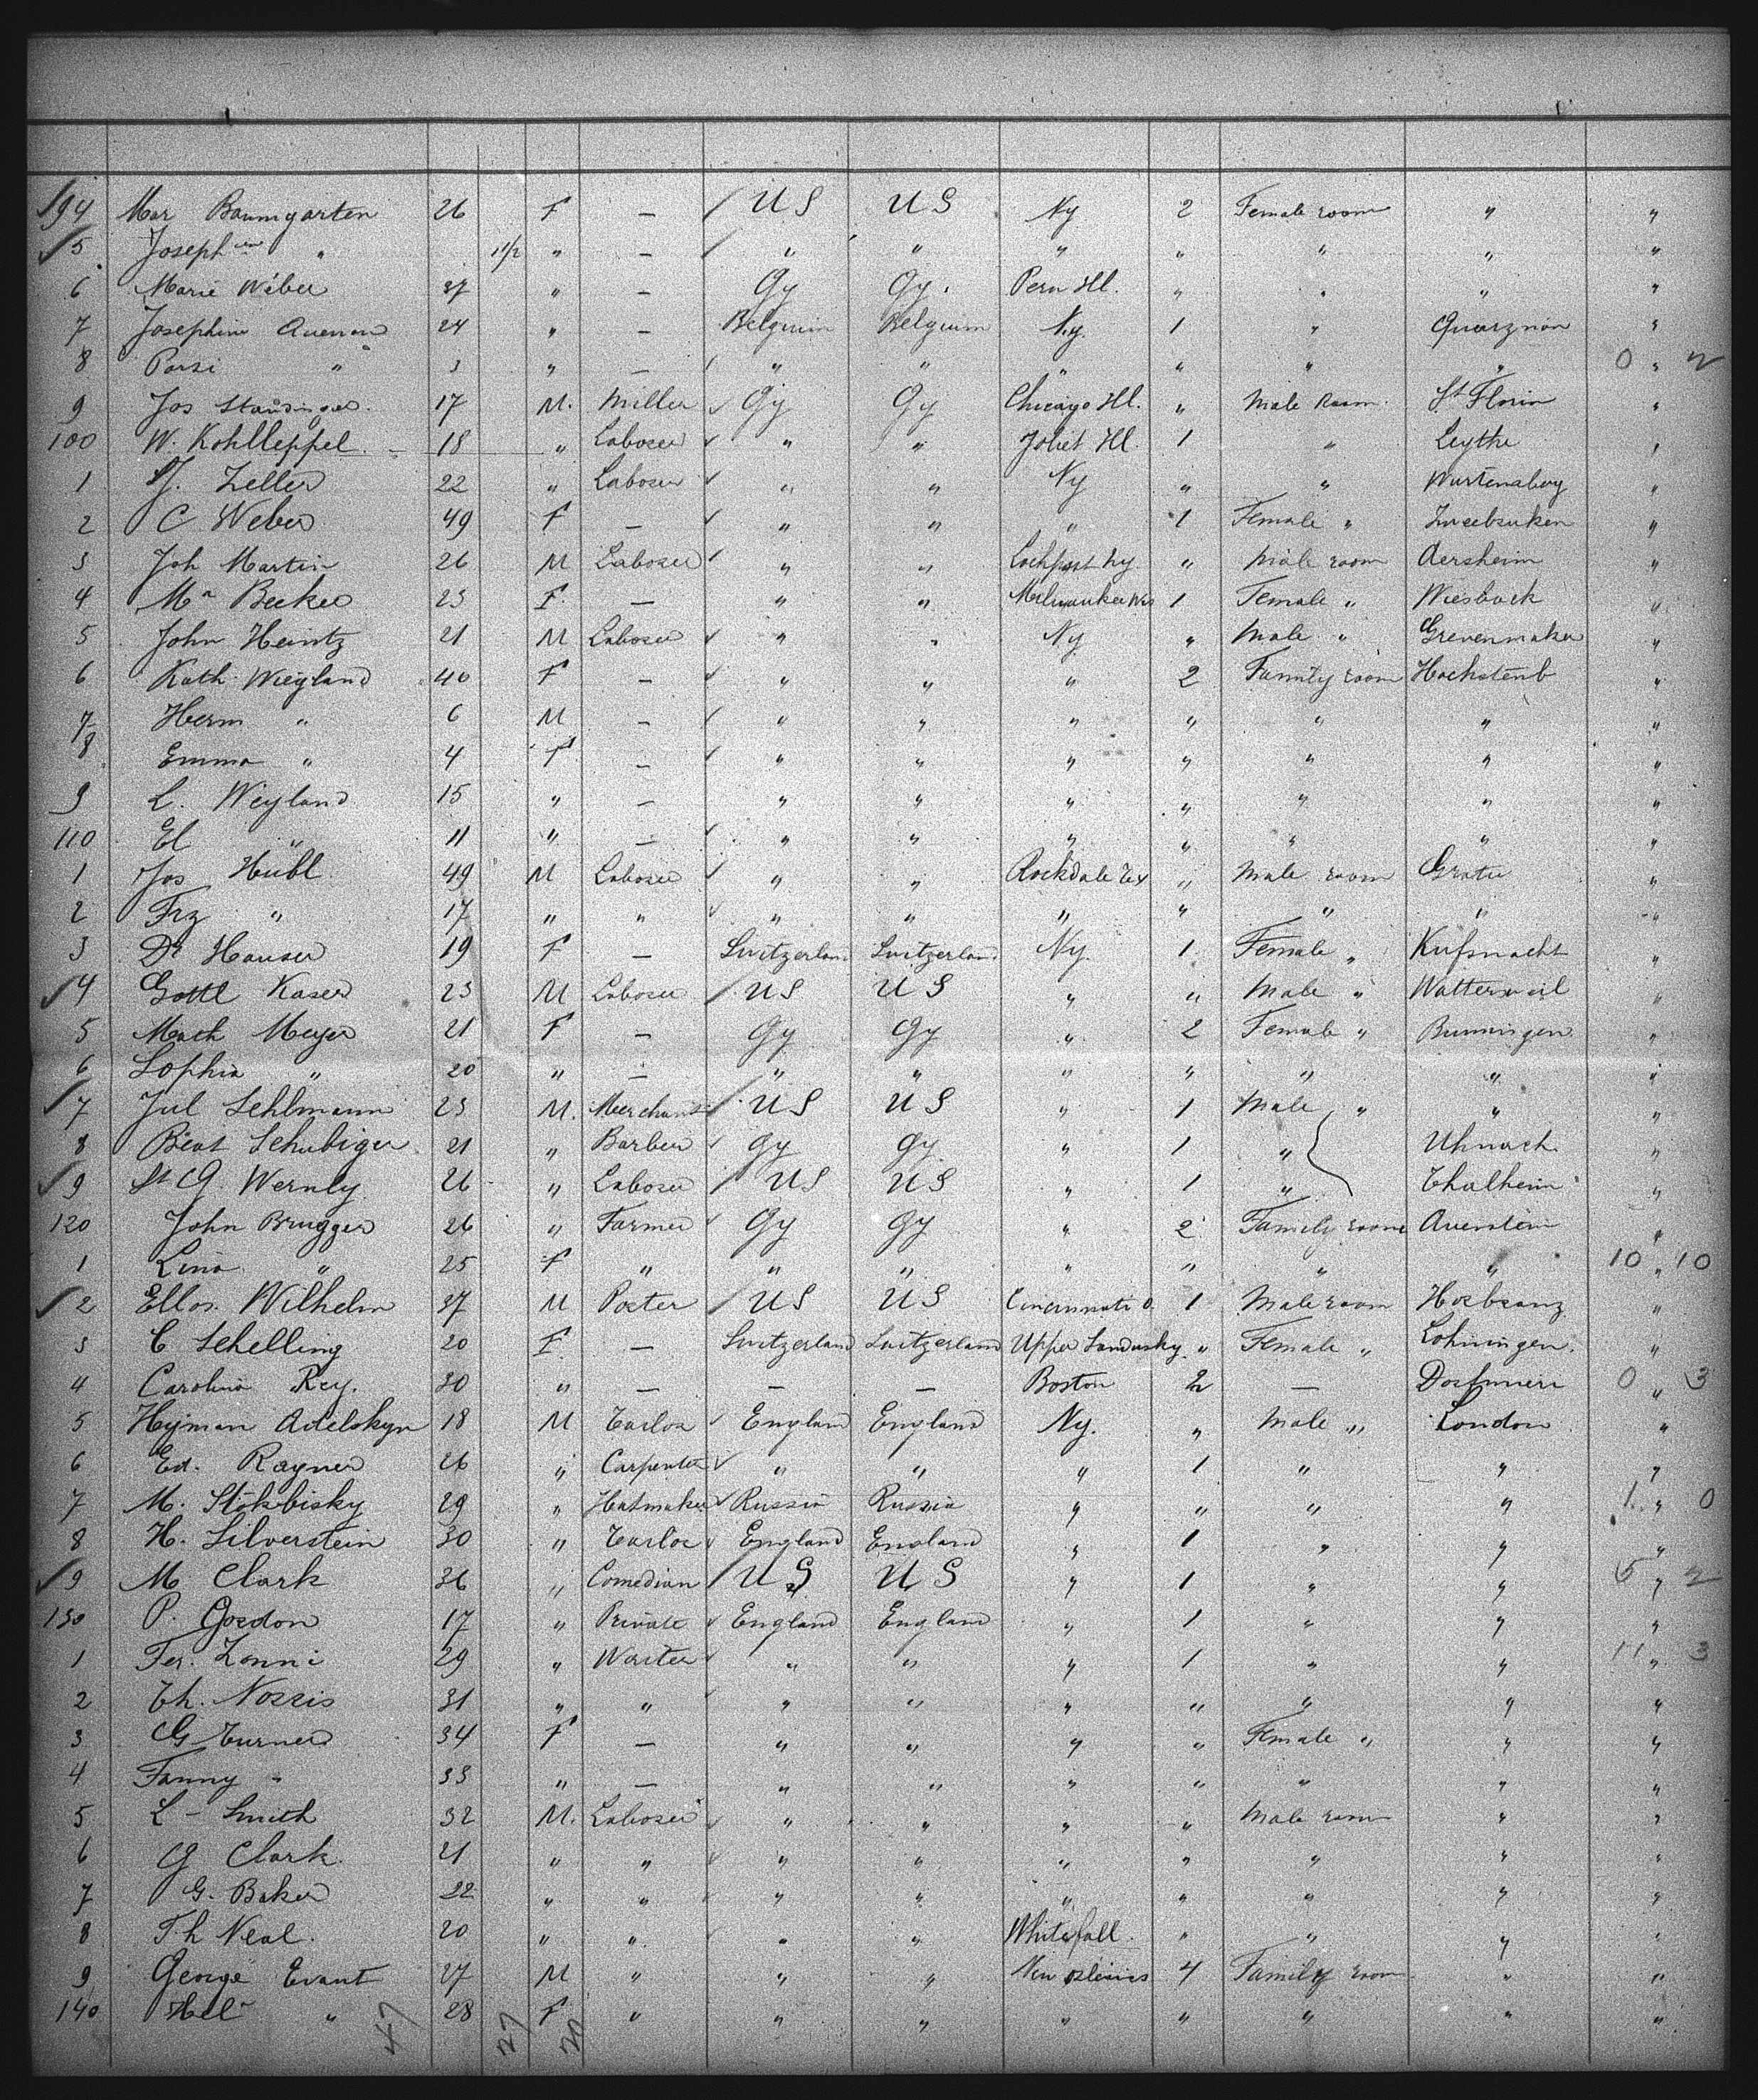 94 Mar Baumgarten 26 F — US US Ny 2 Female room " "
5 Josephine " 11/2 " — " " " " " " "
6 Marie Weber 37 " — Gy Gy. Peru Ill. " " " "
7 Josephine 24 " — Belgium Belgium Ny. 1 " "
8 " 3 " — " " " " " " 0 " 2
9 Jos 17 M. Miller Gy Gy Chicago Ill. " Male Room. St Florin "
100 W. Kohlleppel 18 " Laborer " " Joliet Ill. 1 " Leythe "
1 J. Zeller 22 " Laborer " " Ny " " "
2 C Weber 49 F — " " " 1 Female " "
3 Joh Martin 26 M Laborer " " Lockport Ny. " Male room "
4 Becker 23 F. — " " Milwaukee Wis 1 Female " Wiesbach "
5 John Heintz 21 M Laborer " " Ny " Male " Grevenmaker "
6 Kath. Weyland 40 F — " " " 2 Family room "
7 Herm " 6 M — " " " " " " "
8 Emma " 4 F — " " " " " " "
9 L. Weyland 15 " — " " " " " " "
110 El " 11 " — " " " " " " "
1 Jos Hübl 49 M Laborer " " Rockdale Tex " Male room "
2 Frz " 17 " " " " " " " " "
3 Hauser 19 F — Switzerland Switzerland Ny. 1 Female " Kufsnacht "
4 Gottl Kaser 23 M Laborer US US " " Male " "
5 Math Meyer 21 F — Gy Gy " 2 Female " "
6 Sophia " 20 " — " " " " " " "
7 Jul 23 M. Merchant US US " 1 Male " " "
8 Beat Schubiger 21 " Barber Gy Gy. " 1 " "
9 St G. Wernly 26 " Laborer US US " 1 " Thalheim "
120 John Brugger 26 " Farmer Gy Gy " 2 Family room Auenstein "
1 Lina " 25 F " " " " " " " 10 " 10
2 Wilhelm 37 M Porter US US Cincinnati O. 1 Male room "
3 C Schelling 20 F. — Switzerland Switzerland Upper Sandusky. " Female " Lohningen. "
4 Carolina Rey. 30 " — — — Boston 2 — 0 " 3
5 Hyman 18 M Tailor England England Ny. " Male " London "
6 Ed. Rayner 26 " Carpenter " " " 1 " " "
7 M. 29 " Hatmaker Russia Russia " " " " 1 " 0
8 H. Silverstein 30 " Tailor England England " 1 " " "
9 M Clark 36 " Comedian US US " 1 " " 5 " 2
130 P. Gordon 17 " Private England England " 1 " " "
1 Fer. Zonni 29 " Waiter " " " 1 " " 11 " 3
2 Th. Norris 31 " " " " " " " " "
3 G Turner 34 F — " " " " Female " " "
4 Fanny " 33 " — " " " " " " "
5 L — Smith 32 M. Laborer " " " " Male room " "
6 G Clark. 21 " " " " " " " " "
7 G. Baker 22 " " " " " " " " "
8 Th Neal. 20 " " " " Whitehall. " " " "
9 George Evant 27 M " " " New Orleans 4 Family room " "
140 Hel " 28 F " " " " " " " "
47 27 20